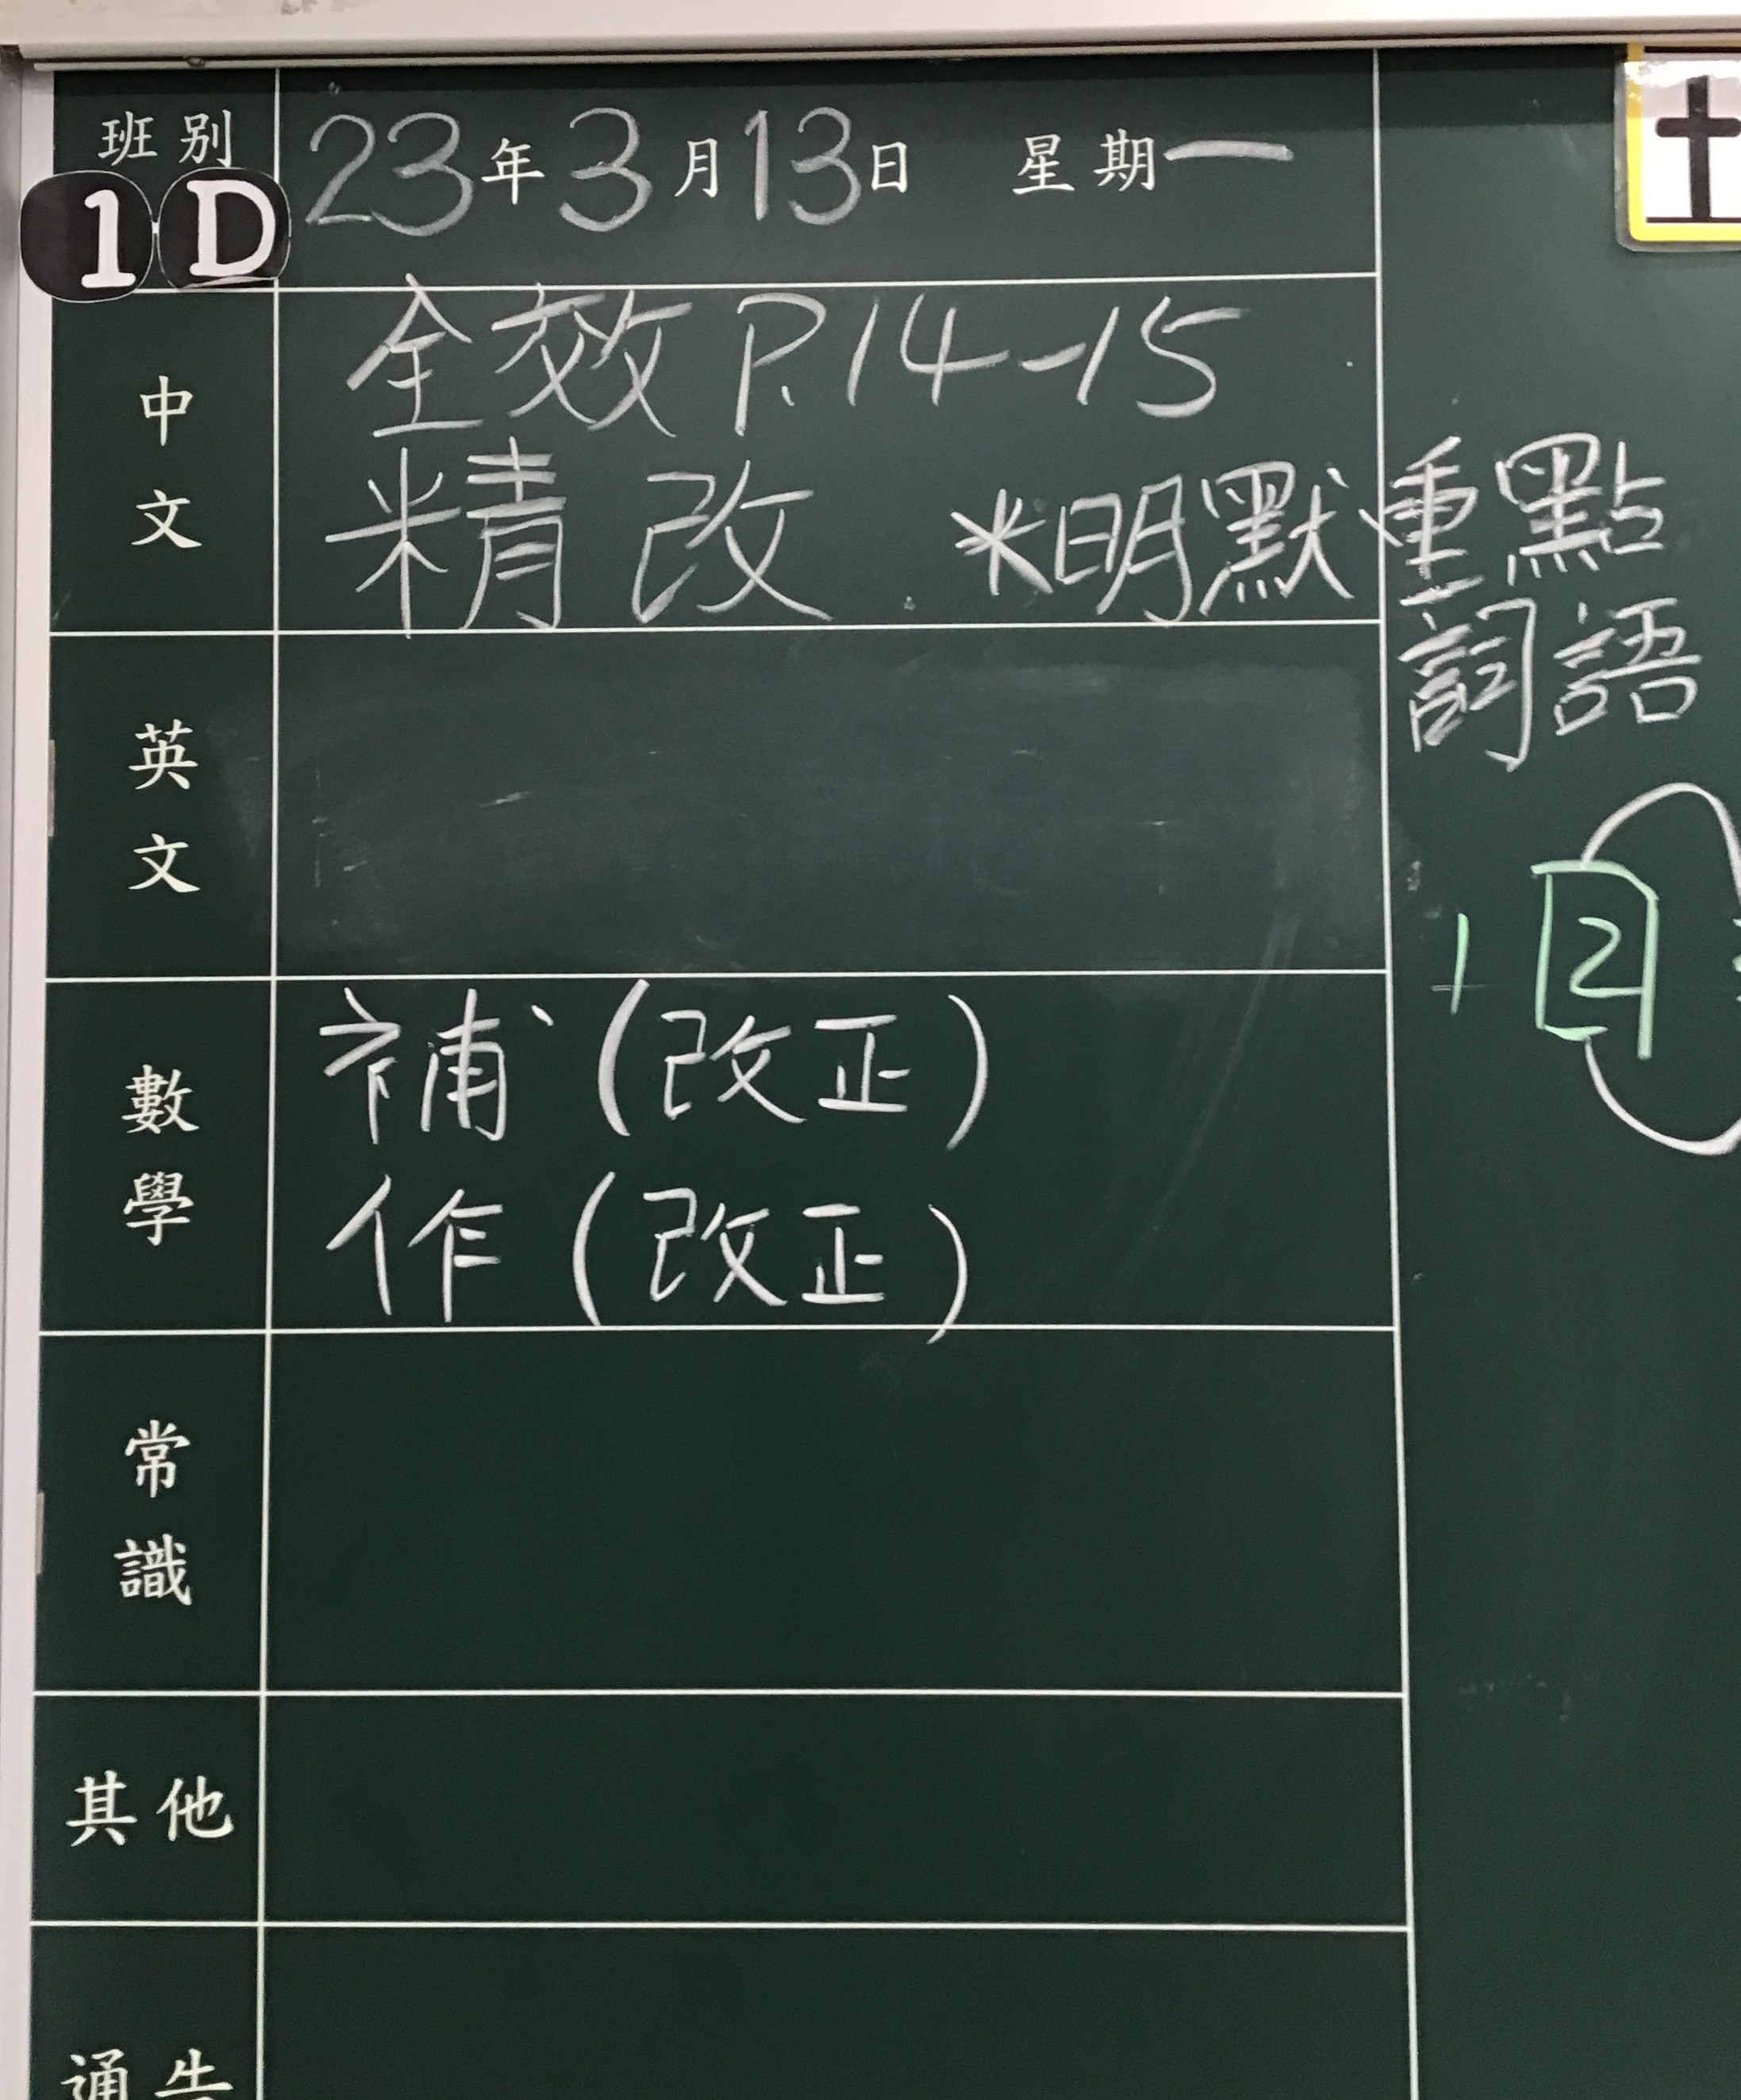 班別
1D
23年3月13日 星期一
中文
全效 P.14-15
精改 *明默重點
詞語
英文
1 2
數學
補(改正)
作(改正)
常識
其他
通告
土